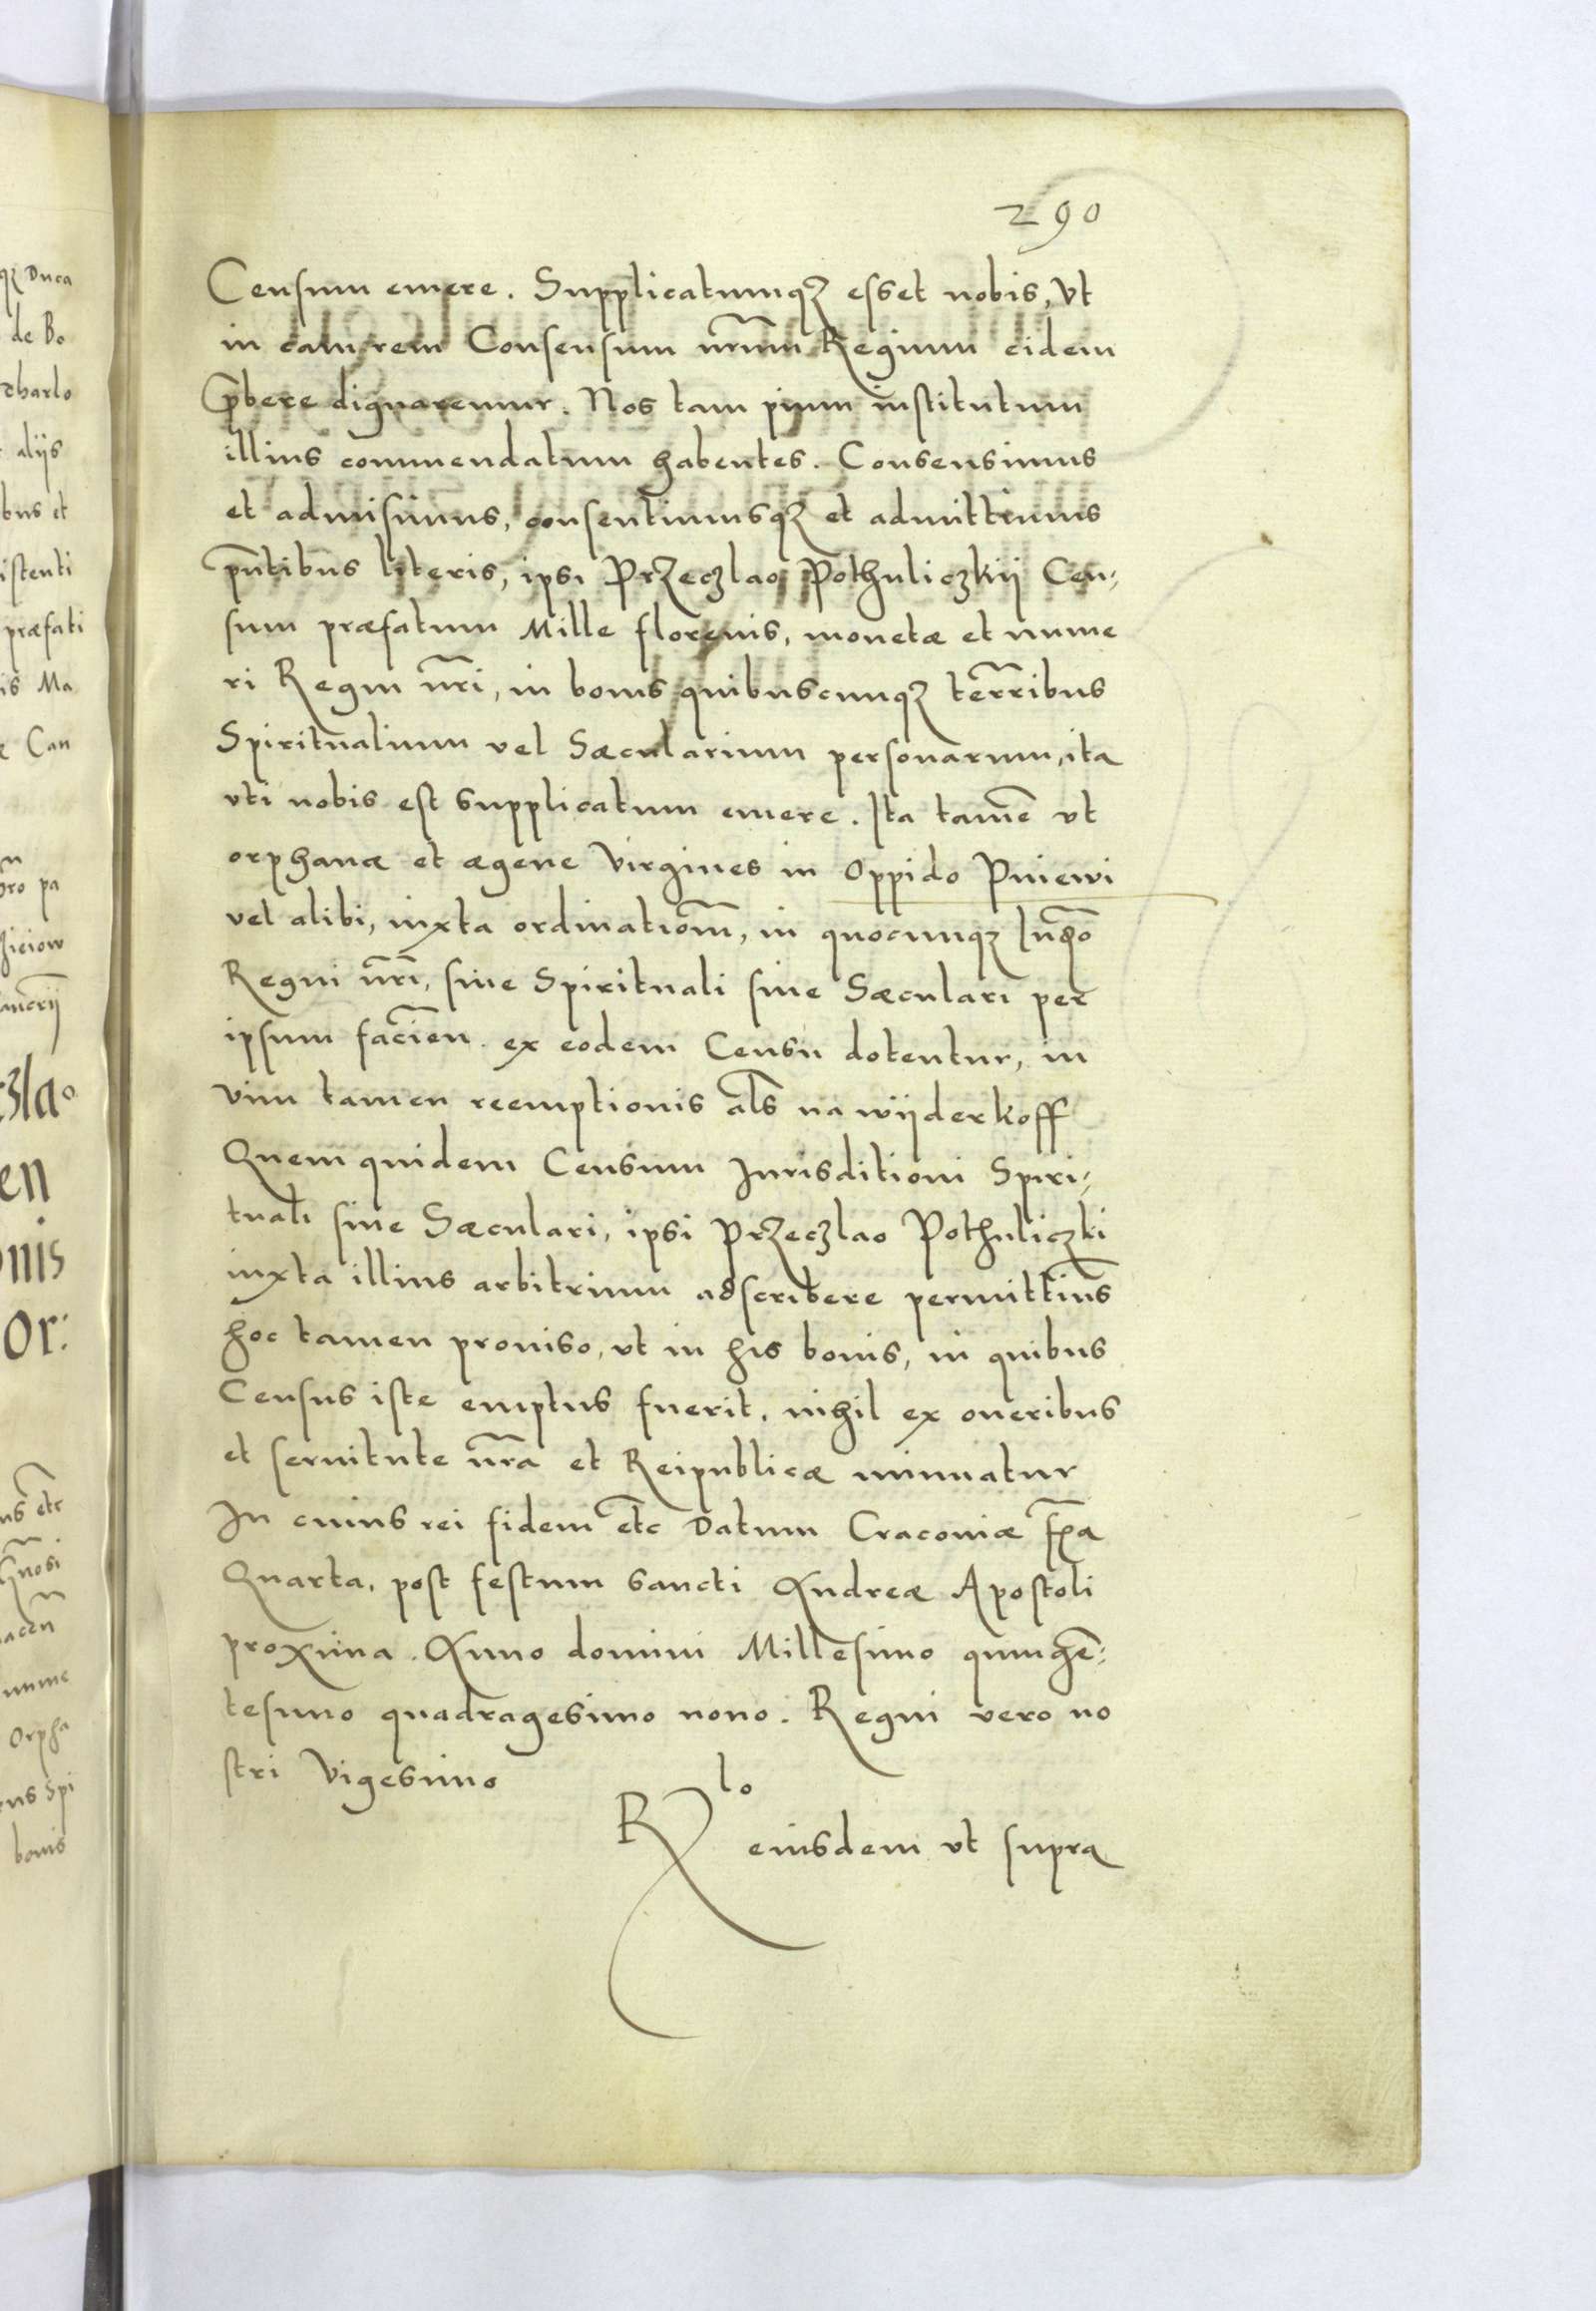 290
Censum emere. Supplicatumqꝫ esset nobis, Vt
in eam rem Consensum nr̄um Regium eidem
p̄bere dignaremur. Nos tam pium institutum
illius commendatum habentes. Consensimus
et admisimus, consentimusqꝫ et admittimus
pn̄tibus literis, ipsi Przeczlao Pothuliczkij Cen,
sum præfatum Mille florenis, monetæ et nume
ri Regni nr̄i, in bonis quibuscunqꝫ terr̄ribus
Spiritualium vel Sæcularium personarum, ita
vti nobis est supplicatum emere. Ita tamē vt
orphanæ et ægene Virgines in Oppido Pniewi
vel alibi, iuxta ordinatiom̄, in quocunqꝫ
Regni nr̄i, siue Spirituali siue Sæculari per
ipsum facien̄. ex eodem Censu dotentur, in
vim tamen reemptionis al̄s na wijderkoff
Quem quidem Censum Jurisditioni Spiri,
tuali siue Sæculari, ipsi Przeczlao Pothuliczki
iuxta illius arbitrium adscribere permittim̄s
hoc tamen prouiso, vt in his bonis, in quibus
Census iste emptus fuerit, nihil ex oneribus
et seruitute nr̄a et Reipublicæ minuatur
In cuius rei fidem etc̄ Datum Cracouiæ fr̄a
Quarta, post festum sancti Andreæ Apostoli
proxima. Anno domini Millesimo quinge̅,
tesimo quadragesimo nono. Regni vero no
stri Vigesimo
Rlo
eiusdem vt supra